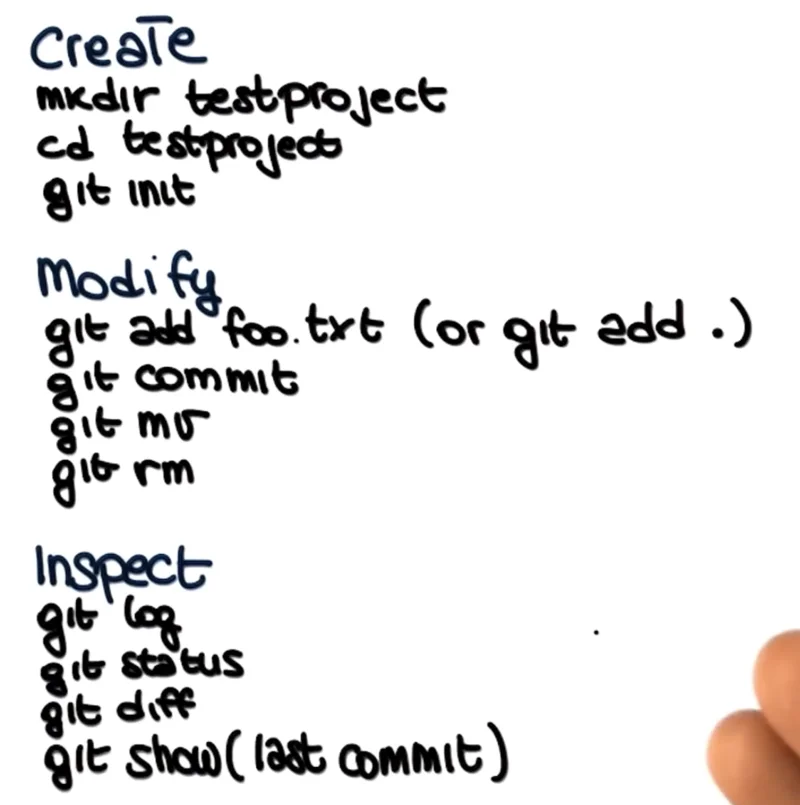 Create
mkdir testproject
cd testproject
git init
Modify
git add foo.txt (or git add .)
git commit
git mv
git rm
Inspect
git log
git status
git diff
git show (last commit)